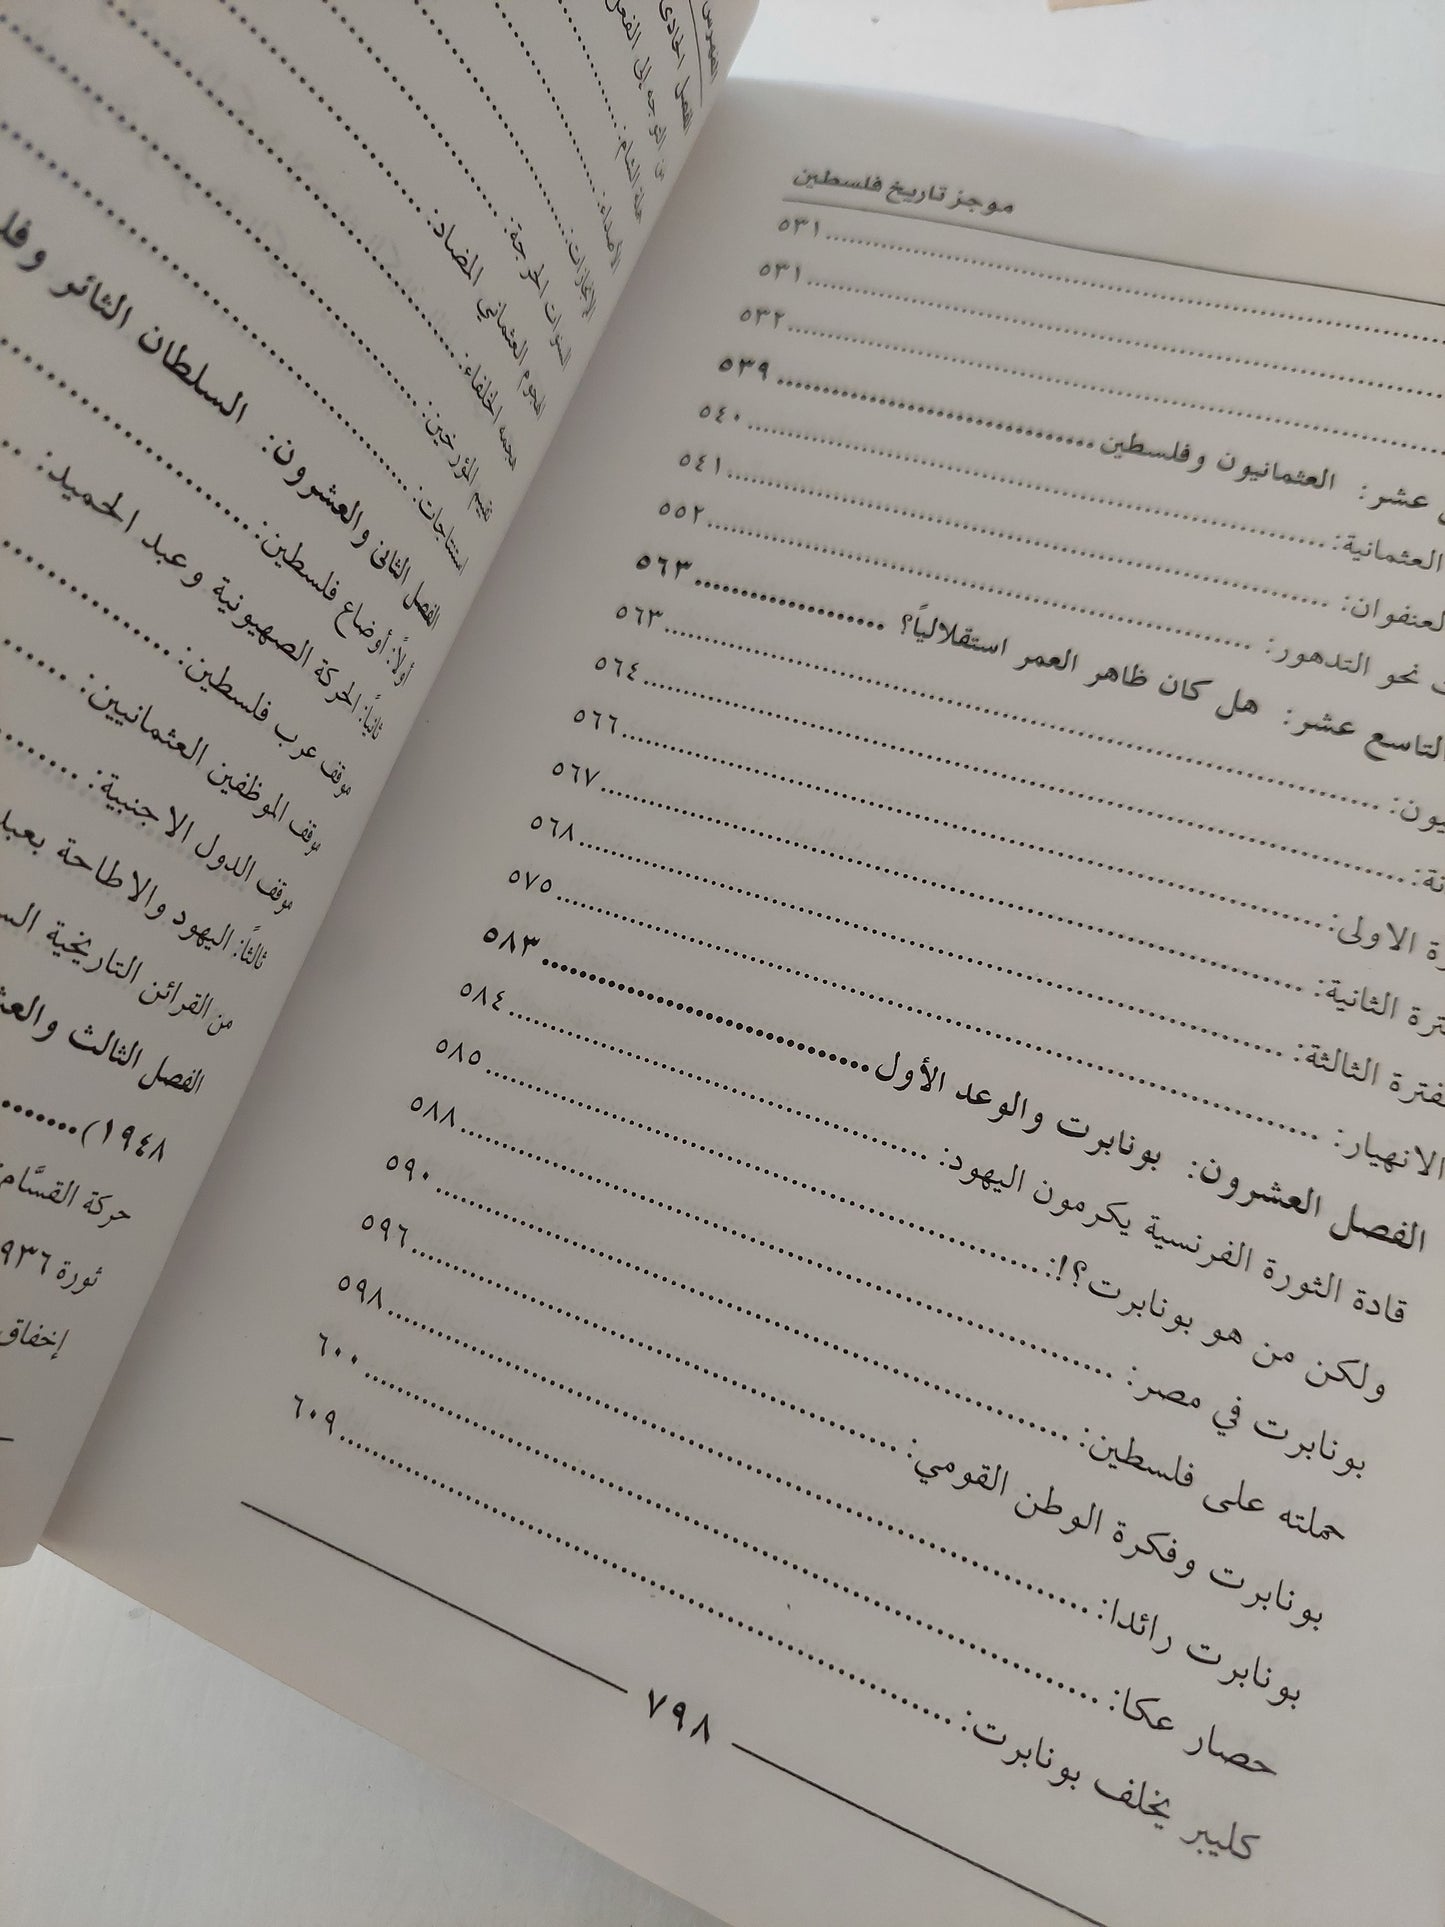 موجز تاريخ فلسطين
٥٣١
٥٣١
٥٣٢
عشر: العثمانيون وفلسطين ٥٣٩
العثمانية: ٥٤٠
العنفوان: ٥٤١
نحو التدهور: ٥٥٢
التاسع عشر: هل كان ظاهر العمر استقلالياً؟ ٥٦٣
٥٦٣
٥٦٤
الاولى: ٥٦٦
الثانية: ٥٦٧
الثالثة: ٥٦٨
الانهيار: ٥٧٥
الفصل العشرون: بونابرت والوعد الأول ٥٨٣
قادة الثورة الفرنسية يكرمون اليهود: ٥٨٤
ولكن من هو بونابرت؟!: ٥٨٥
بونابرت في مصر: ٥٨٨
حملته على فلسطين: ٥٩٠
بونابرت وفكرة الوطن القومي: ٥٩٦
بونابرت رائدا: ٥٩٨
حصار عكا: ٦٠٠
كليبر يخلف بونابرت: ٦٠٩
٧٩٨
الفهرس
الفصل الحادي
حملة الشام:
الأصداء:
الإنجازات:
السنوات الحرجة:
الهجوم العثماني المضاد:
الخلفاء:
تقييم المؤرخين:
استنتاجات:
الفصل الثاني والعشرون: السلطان الثائر
أولاً: أوضاع فلسطين:
ثانياً: الحركة الصهيونية وعبد الحميد:
موقف عرب فلسطين:
موقف الموظفين العثمانيين:
موقف الدول الاجنبية:
ثالثاً: اليهود والاطاحة
من القرائن التاريخية
الفصل الثالث
١٩٤٨)
حركة القسَّام
ثورة
إخفاق